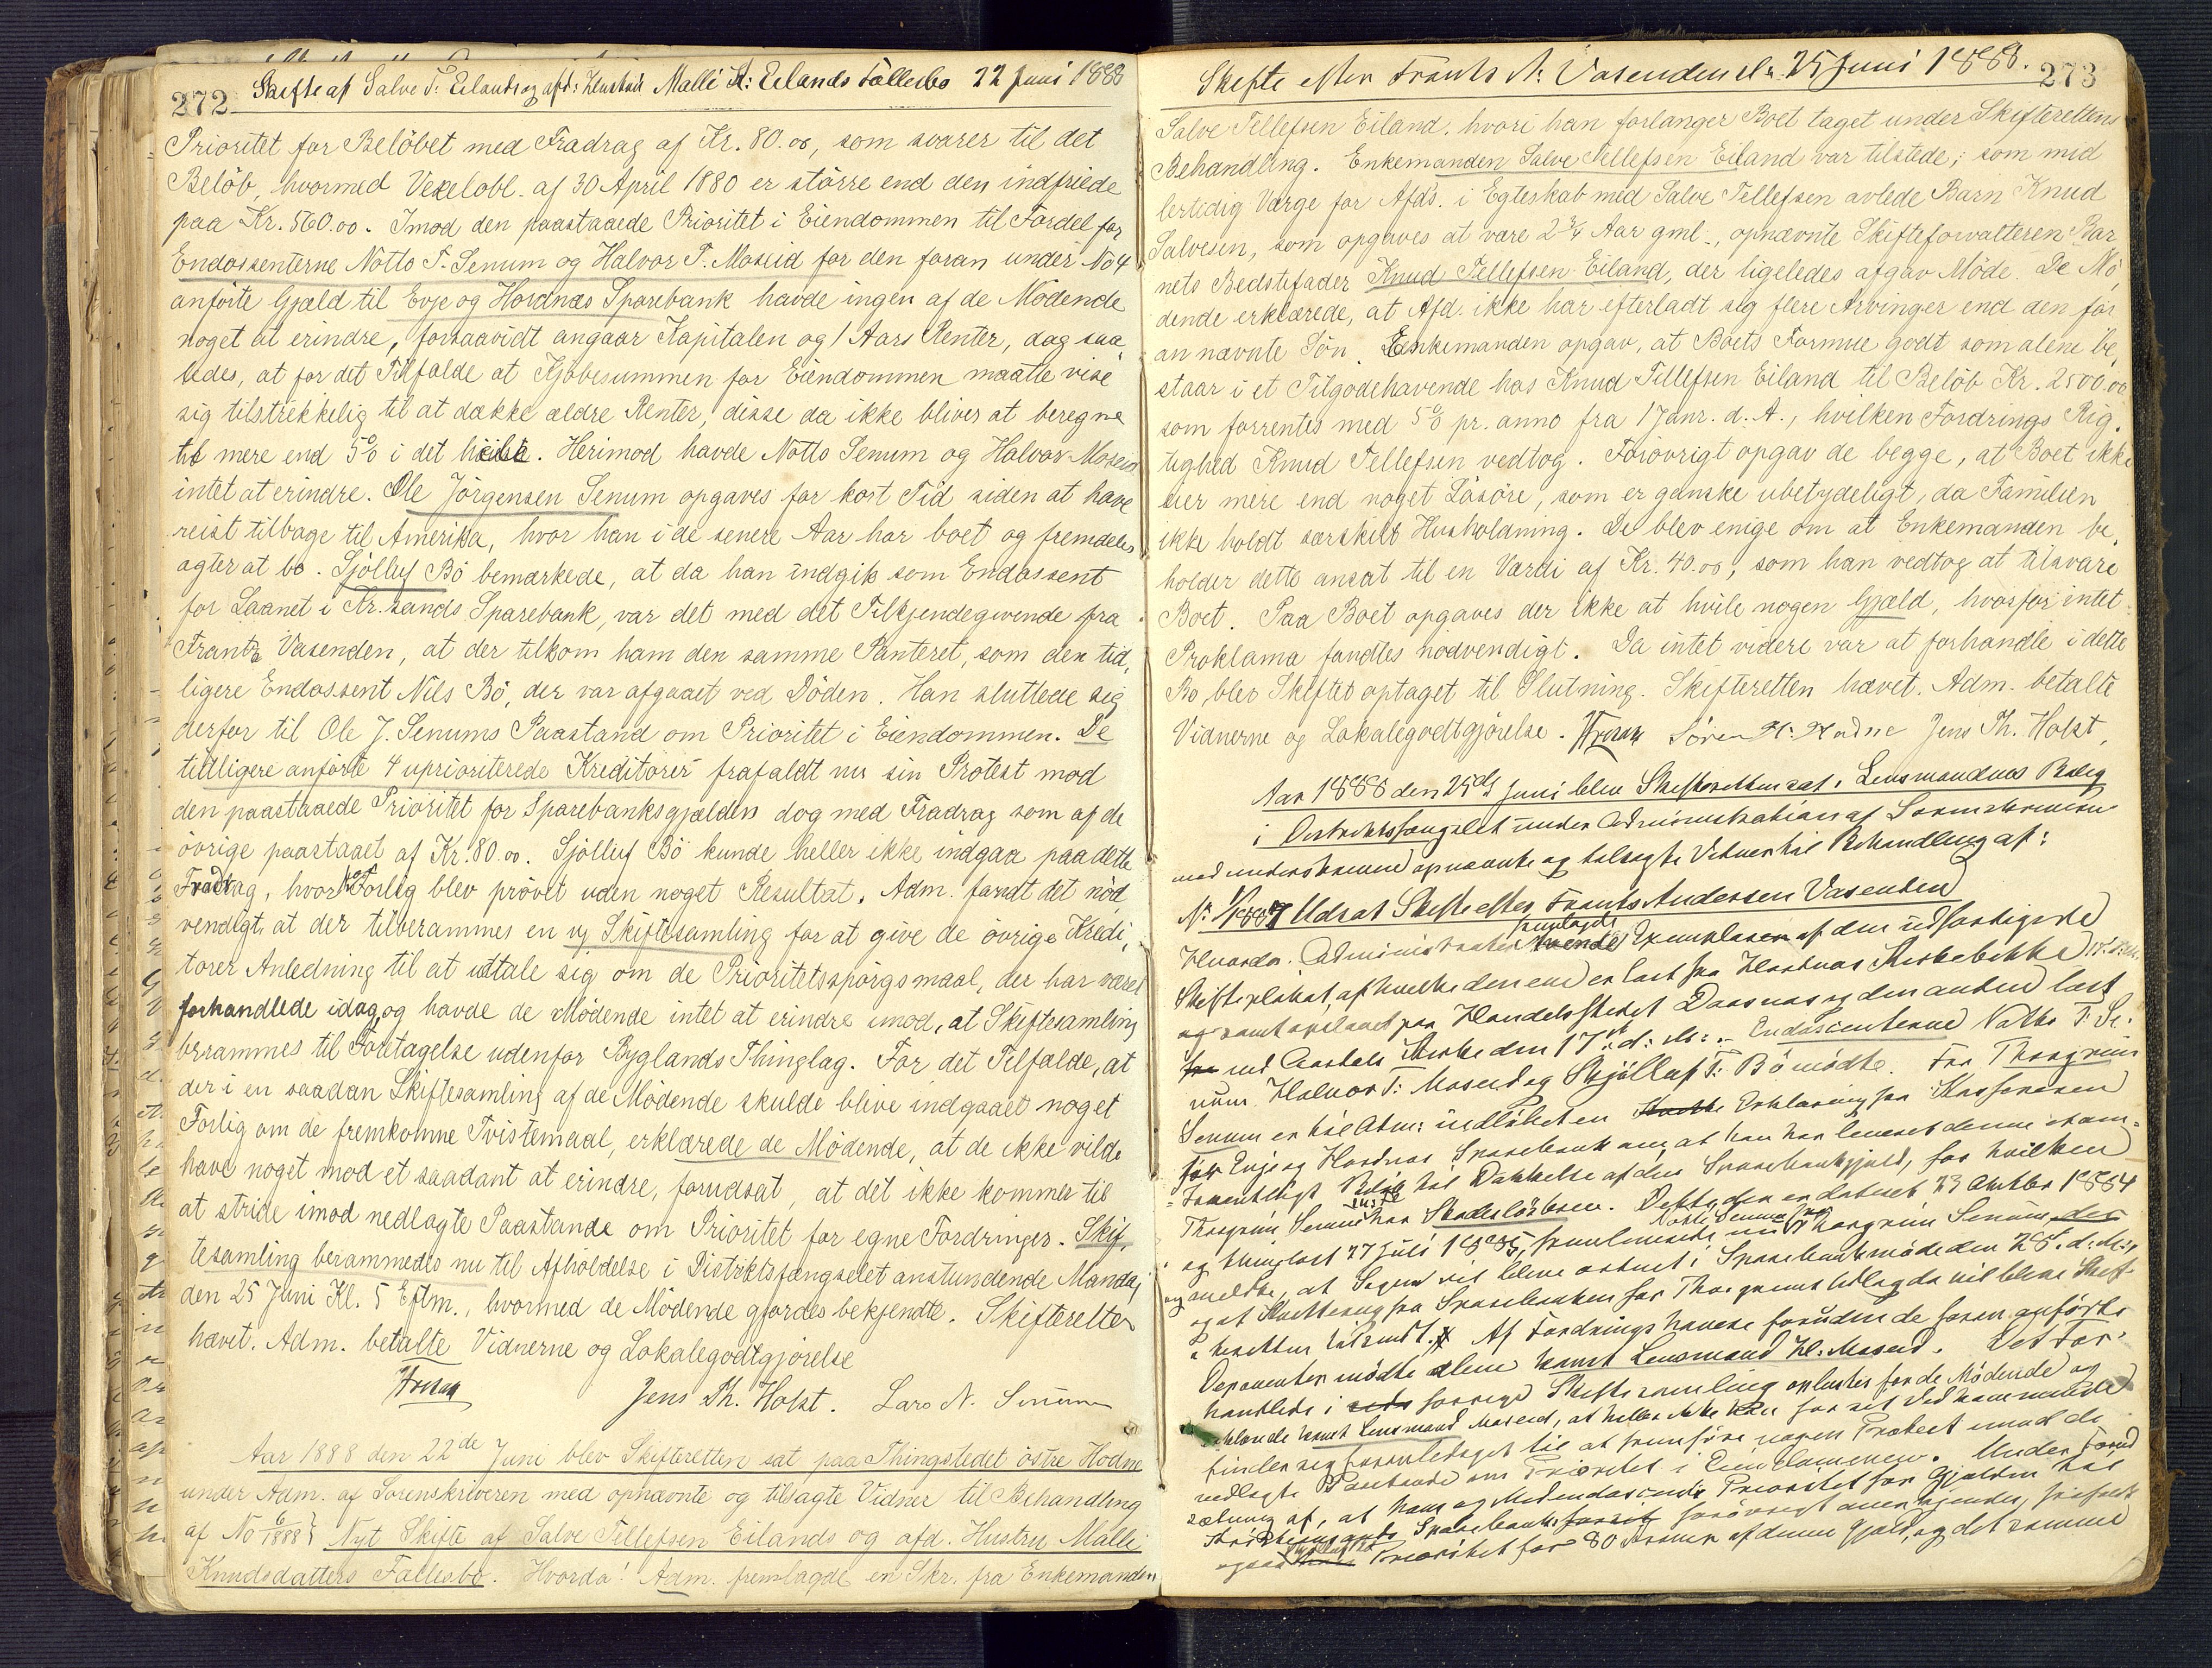 272 Skifte af Salve T. Eilands og afd: Hustrus Malli K: Eilands Fællesbo 22 Juni 1888
Prioritet for Beløbet med Fradrag af Kr. 80.00, som svarer til det
Beløb, hvormed Vexelobl. af 30 April 1880 er större end den indfriede
paa Kr. 560.00. Imod den paastaaede Prioritet i Eiendommen til Fordel for
Endossenterne Notto T. Senum og Halvor T. Moseid for den foran under No 4
anförte Gjæld til Evje og Hordnæs Sparebank havde ingen af de Mödende
noget at erindre, forsaavidt angaar Kapitalen og 1 Aars Renter, dog saa
ledes, at for det Tilfælde at Kjöbesummen for Eiendommen maatte vise
sig tilstrekkelig til at dække ældre Renter, disse da ikke bliver at beregne
til mere end 5% i det hele. Herimod havde Notto Senum og Halvor Moseid
intet at erindre. Ole Jörgensen Senum opgaves for kort Tid siden at have
reist tilbage til Amerika, hvor han i de senere Aar har boet og fremdeles
agter at bo. Sjölluf Bö bemærkede, at da han indgik som Endossent
for Laanet i Kr.sands Sparebank, var det med det Tilkjendegivende fra
Frantz Vasenden, at der tilkom ham den samme Panteret, som den tid,
ligere Endossent Nils Bö, der var afgaaet ved Döden. Han sluttede sig
derfor til Ole J. Senums Paastand om Prioritet i Eiendommen. De
tidligere anförte 4 uprioriterede Kreditorer frafaldt nu sin Protest mod
den paastaaede Prioritet for Sparebanksgjælden dog med Fradrag som af de
övrige paastaaet af Kr. 80.00. Sjölluf Bö kunde heller ikke indgaa paa dette
Fradrag, hvorfor Forlig blev prövet uden noget Resultat. Adm. fandt det nöd
vendigt, at der tilberammes en ny Skiftesamling for at give de övrige Kredi,
torer Anledning til at udtale sig om de Prioritetsspörgsmaal, der har været
forhandlede idag, og havde de Mödende intet at erindre imod, at Skiftesamling
berammes til Foretagelse udenfor Byglands Thinglag. For det Tilfælde, at
der i en saadan Skiftesamling af de Mödende skulde blive indgaaet noget
Forlig om de fremkomne Tvistemaal, erklærede de Mödende, at de ikke vilde
have noget mod et saadant at erindre, forudsat, at det ikke kommer til
at stride imod nedlagte Paastande om Prioritet for egne Fordringer. Skif,
tesamling berammedes nu til Afholdelse i Distriktsfængselet anstundende Mandag
den 25 Juni Kl. 5 Eftm., hvormed de Mödende gjordes bekjendte. Skifteretten
hævet. Adm. betalte Vidnerne og Lokalegodtgjörelse
Jens Th. Holst. Lars N. Senum
Aar 1888 den 22de Juni blev Skifteretten sat paa Thingstedet östre Hodne
under Adm. af Sorenskriveren med opnævnte og tilsagte Vidner til Behandling
af No 6/1888: Nyt Skifte af Salve Tellefsen Eilands og afd. Hustru Malli
Knudsdatters Fællesbo. Hvorda: Adm. fremlagde en Skr. fra Enkemanden
Skifte efter Frants A: Vasenden d. 25 Juni 1888. 273
Salve Tellefsen Eiland, hvori han forlanger Boet taget under Skifterettens
Behandling. Enkemanden Salve Tellefsen Eiland var tilstede; som mid
lertidig Værge for Afd's. i Egteskab med Salve Tellefsen avlede Barn Knud
Salvesen, som opgaves at være 2 3/4 Aar gml., opnævnte Skifteforvalteren Bar
nets Bedstefader Knud Tellefsen Eiland, der ligeledes afgav Möde. De Mö,
dende erklærede, at Afd. ikke har efterladt sig flere Arvinger end den for
an nævnte Sön. Enkemanden opgav, at Boets Formue godt som alene be,
staar i et Tilgodehavende hos Knud Tellefsen Eiland til Belöb Kr. 2500.00
som forrentes med 5% pr. anno fra 1 Janr. d. A., hvilken Fordrings Rig,
tighed Knud Tellefsen vedtog. Forövrigt opgav de begge, at Boet ikke
eier mere end noget Lösöre, som er ganske ubetydeligt, da Familien
ikke holdt særskilt Husholdning. De blev enige om at Enkemanden be,
holder dette ansat til en Værdi af Kr. 40.00, som han vedtog at tilsvare
Boet. Paa Boet opgaves der ikke at hvile nogen Gjæld, hvorfor intet
Proklama fandtes nödvendigt. Da intet videre var at forhandle i dette
Bo, blev Skiftet optaget til Slutning. Skifteretten hævet. Adm. betalte
Vidnerne og Lokalegodtgjörelse. Sören H. Hodne Jens Th. Holst,
Aar 1888 den 25de Juni blev Skifteretten sat i Lensmandens Bolig
i Distriktsfængslet under Administration af Sorenskriveren
med underskrevne opnævnte og tilsagte Vidner til Behandling af:
No 1/1887 Udsat Skifte efter Frants Andersen Vasenden
Hvorda. Administrator fremlagde Exemplarer af den udfærdigede
Skifteplakat, af hvilke den ene er læst fra Hordnæs Kirkebakke
og samt opslaaet paa Handelsstedet Daasnæs og den anden læst
ved Aardals Kirke den 17. d: M:. Endossenterne Notto T. Se,
num Halvor T: Moseid og Skjölluf T: Bö mödte. Fra Thorgrim
Senum er til Adm: indlöbet en Erklæring fra Kassereren
for Evje og Hordnæs Sparebank om, at han har leveret denne
Beløb til Dækkelse af den Sparebankgjæld, for hvilken
Thorgrim Senum har Skadeslösbrev. Dette, der er dateret 23 Oktbr 1884
og thinglæst 27 Juli 1885, fremleverede Notto Senum for Thorgrim Senum, der
og meldte, at Sagen vil blive ordnet i Sparebankmöde den 28. d: M:,
og at Kvittering fra Sparebanken for Thorgrims Udlæg da vil blive Skif-
teretten tilsendt. Af Fordringshavere foruden de foran anförte
Deponenter mödte alene Kand Lensmand H: Moseid. Det For,
handlede i forrige Skiftesamling oplæstes for de Mödende og
erklærede Lensmand Moseid, at heller ikke han for sit Vedkommende
finder sig foranlediget til at fremföre nogen Protest imod de
nedlagte Paastande om Prioritet i Eiendommen. Under Forud
sætning af, at hans og Medendossents Prioritet for Gjælden til
Kristianssands Sparebank forövrigt anerkjendes, frafaldt
ogsaa Prioritet for 80 Kroner af denne Gjæld, og det samme